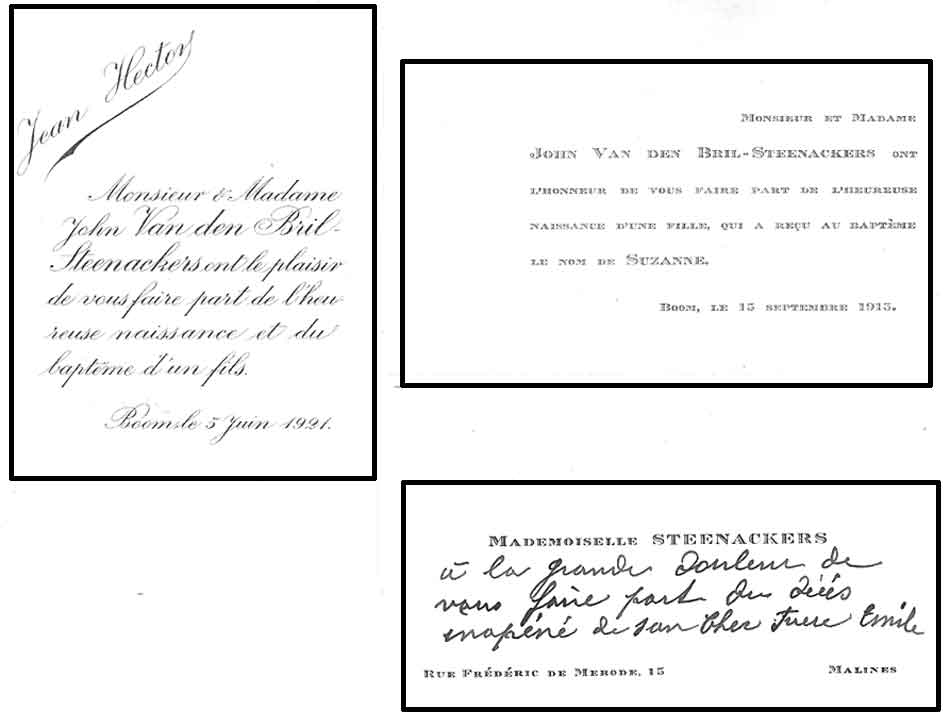 Jean Hector
Monsieur & Madame
John Van den Bril-
Steenackers ont le plaisir
de vous faire part de l'heu-
reuse naissance et du
baptême d'un fils.
Boom, le 5 Juin 1921.
Monsieur et Madame
John Van den Bril-Steenackers ont
l'honneur de vous faire part de l'heureuse
naissance d'une fille, qui a reçu au baptême
le nom de Suzanne.
Boom, le 15 septembre 1915.
Mademoiselle STEENACKERS
à la grande douleur de
vous faire part du décés
inopéné de son Cher Frere Emile
Rue Frédéric de Merode, 15 Malines